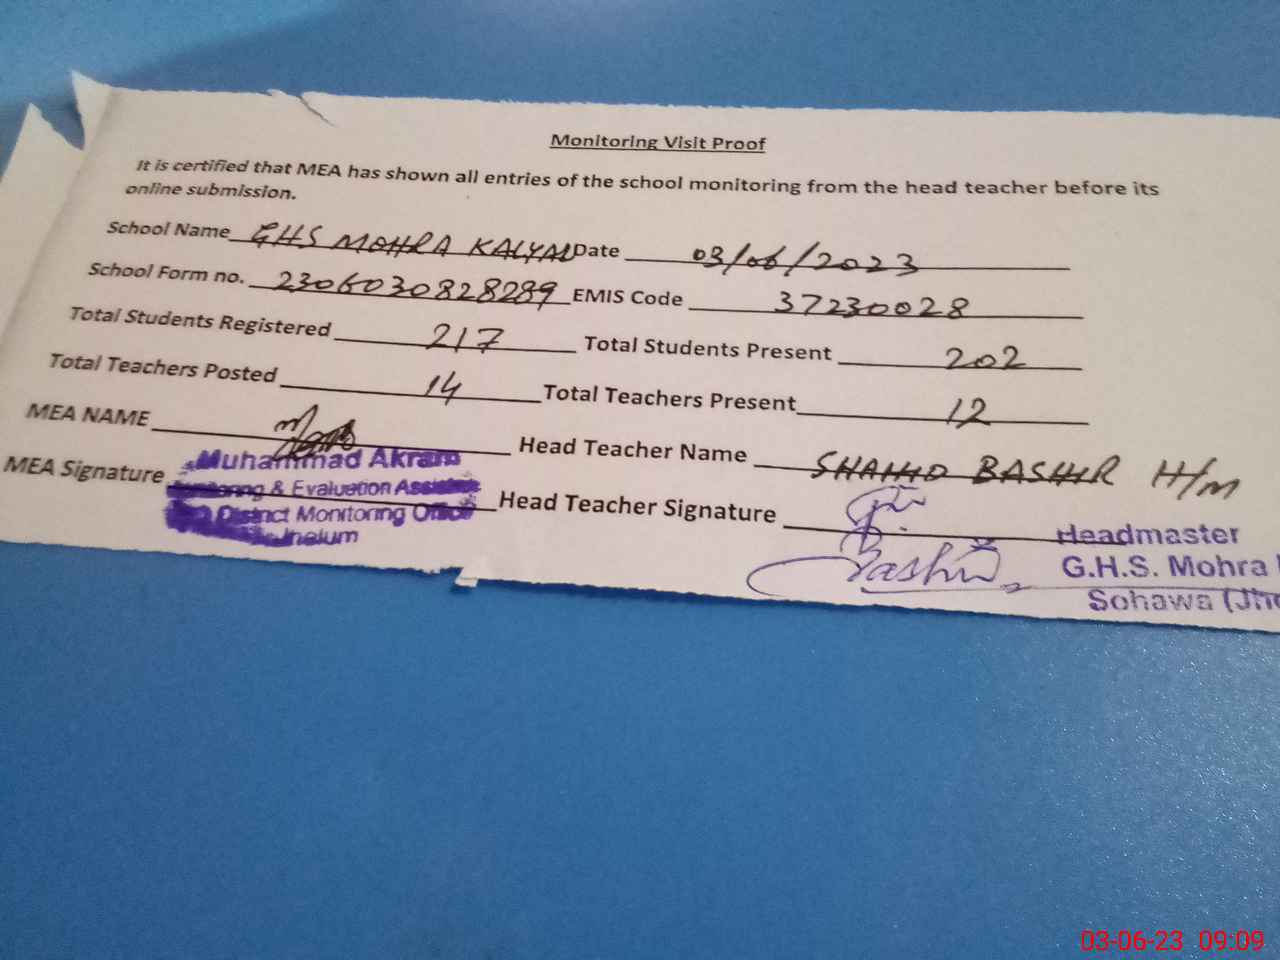 Monitoring Visit Proof
It is certified that MEA has shown all entries of the school monitoring from the head teacher before its
online submission.
School Name GHS MOHRA KALYAL Date 03/06/2023
School Form no. 2306030828289 EMIS Code 37230028
Total Students Registered 217 Total Students Present 202
Total Teachers Posted 14 Total Teachers Present 12
MEA NAME Head Teacher Name SHAHID BASHIR H/M
MEA Signature Muhammad Akram
& Evaluation Assistant
District Monitoring Office
Jhelum
Head Teacher Signature
Bashir
Headmaster
G.H.S. Mohra
Sohawa (Jhe
03-06-23 09:09